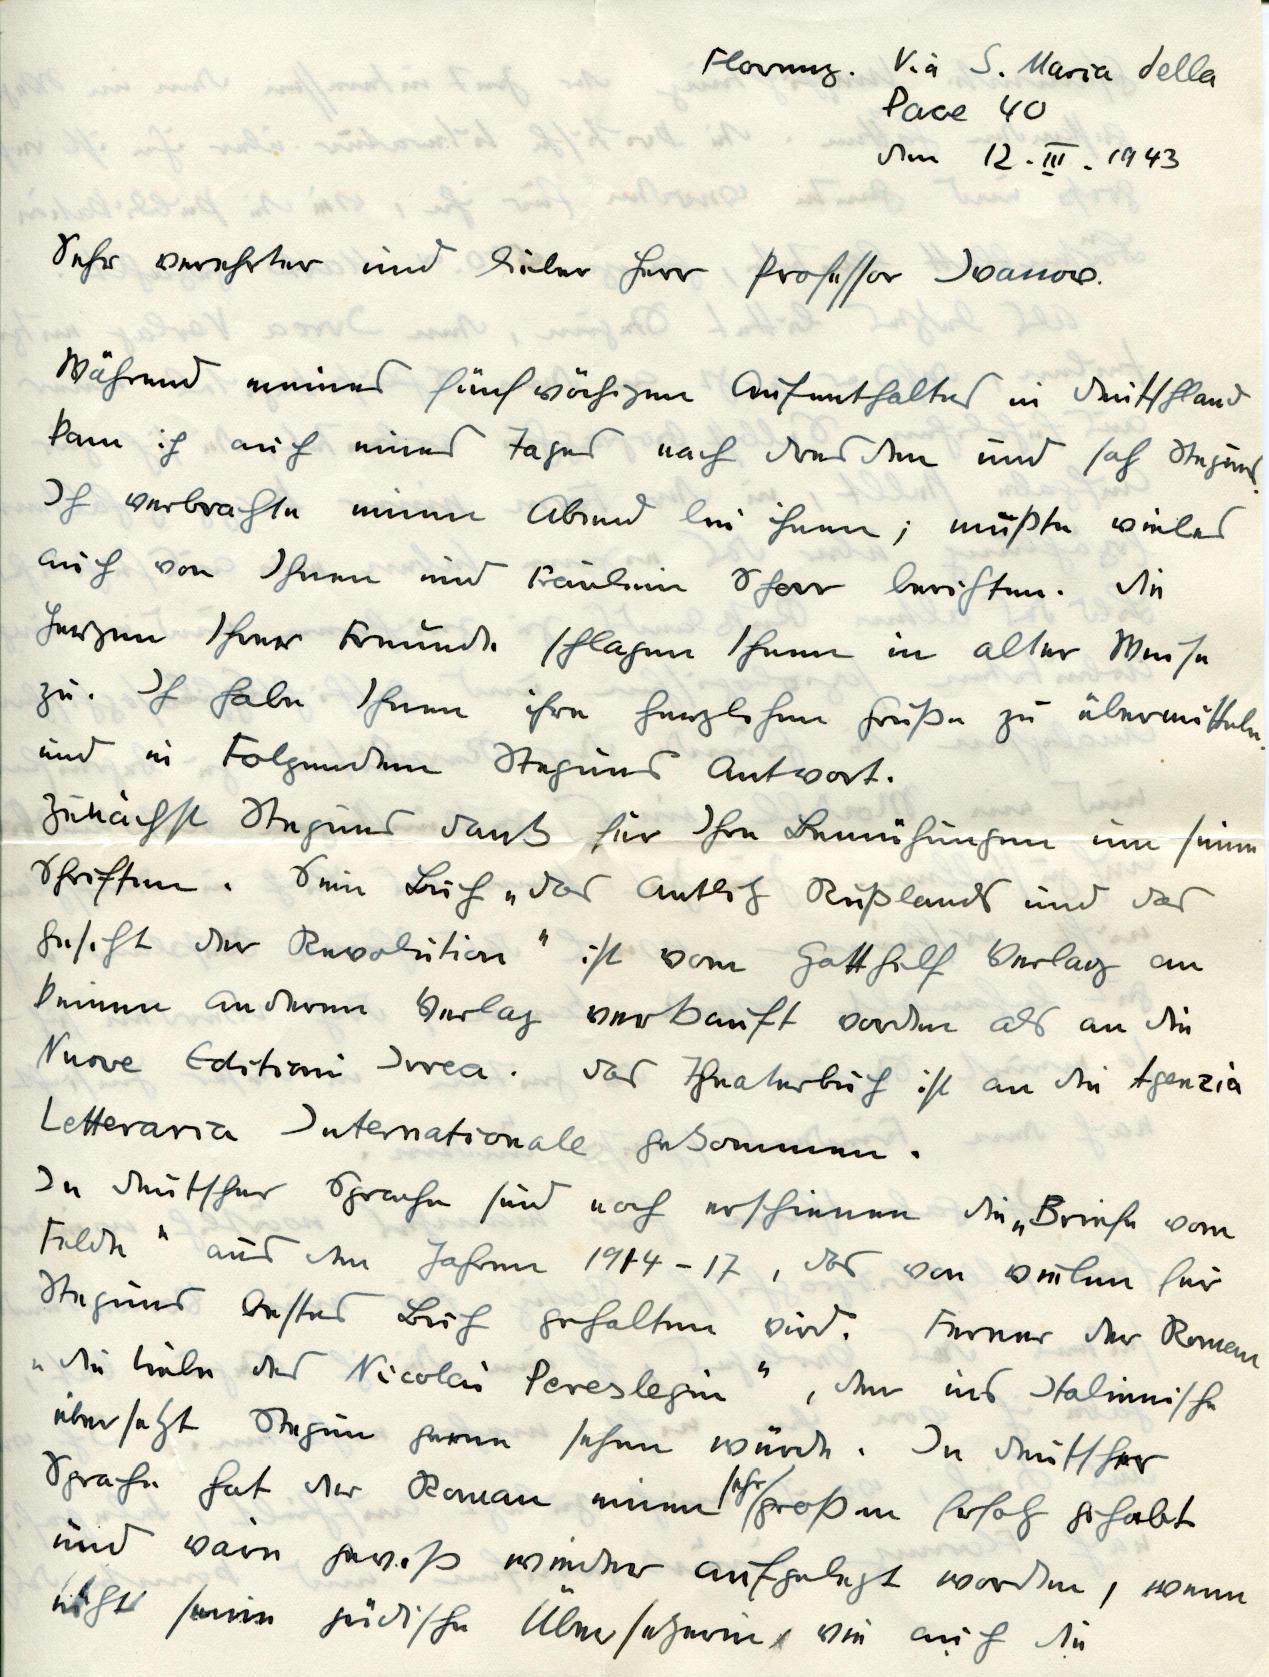 Florenz. Via S. Maria della
Pace 40
den 12.III.1943
Sehr verehrter und lieber Herr Professor Ivanow.
Während meines fünfwöchigen Aufenthaltes in Deutschland
kam ich auch eines Tages nach Dresden und sah Stepuns.
Ich verbrachte einen Abend bei ihnen; mußte vieles
auch von Ihnen und Fräulein Schor berichten. Die
Herzen Ihrer Freunde schlagen Ihnen in alter Weise
zu. Ich habe Ihnen ihre herzlichen Grüße zu übermitteln
und in Folgendem Stepuns Antwort.
Zunächst Stepuns Dank für Ihre Bemühungen um seine
Schriften. Sein Buch „das Antlitz Rußlands und das
Gesicht der Revolution" ist vom Gotthelf Verlag an
keinen anderen Verlag verkauft worden als an die
Nuove Editioni Ivrea. Das Theaterbuch ist an die Agenzia
Letteraria Internationale gekommen.
In deutscher Sprache sind noch erschienen die „Briefe vom
Felde" aus den Jahren 1914-17, das von vielen für
Stepuns bestes Buch gehalten wird. Ferner der Roman
„die Liebe des Nicolai Pereslegin", der ins Italienische
übersetzt Stepun gerne sehen würde. In deutscher
Sprache hat der Roman einen sehr großen Erfolg gehabt
und wäre gewiß wieder aufgelegt worden, wenn
nicht seine jüdische Übersetzerin, wie auch die